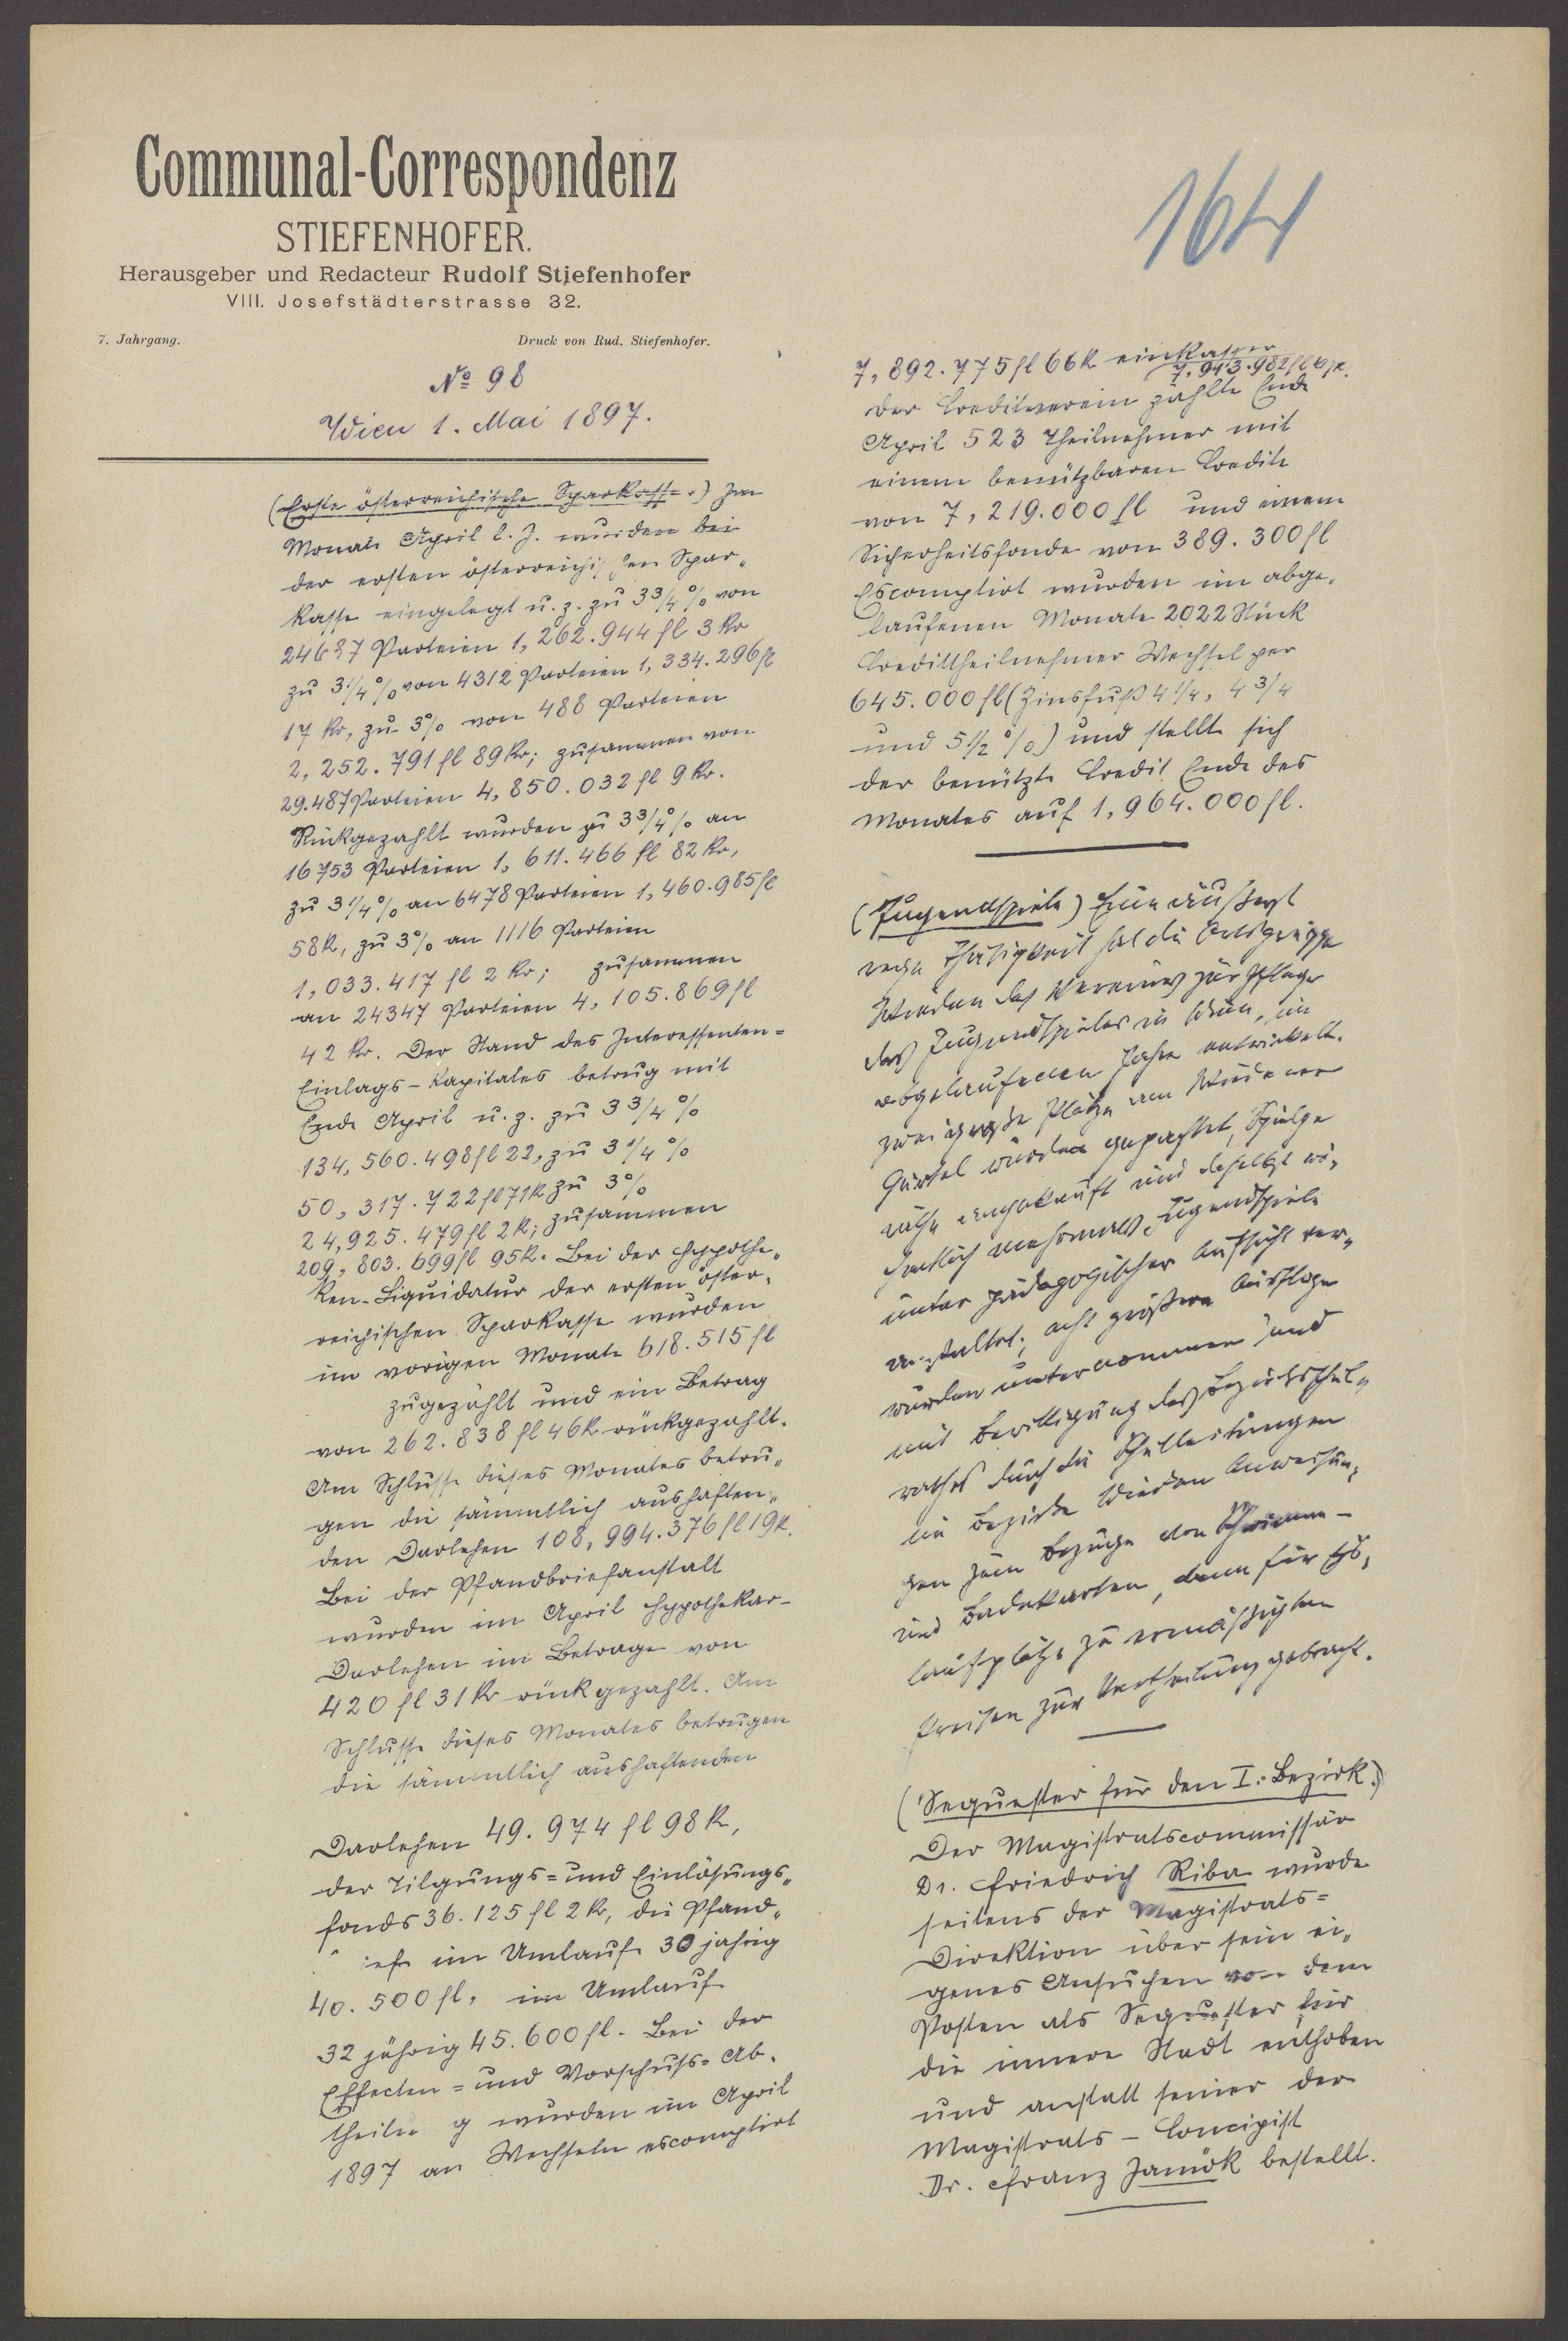 Communal-Correspondenz
STIEFENHOFER.
Herausgeber und Redacteur Rudolf Stiefenhofer
VIII. Josefstädterstrasse 32.
7. Jahrgang. Druck von Rud. Stiefenhofer.
No 98
Wien 1. Mai 1897.
(Erste österreichische Sparkasse.) Im
Monate April l. J. wurden bei
der ersten österreichischen Spar„
kasse eingelegt u. z. zu 3 3/4 % von
24687 Parteien 1,262.944 fl 3 Kr
zu 3 1/4 % von 4312 Parteien 1,334.296 fl
17 Kr, zu 3% von 488 Parteien
2,252.791 fl 89 Kr; zusammen von
29.487 Parteien 4,850.032 fl 9 Kr.
Rückgezahlt wurden zu 3 3/4 % an
16753 Parteien 1,611.466 fl 82 Kr,
zu 3 1/4 % an 6478 Parteien 1,460.985 fl
58 K, zu 3% an 1116 Parteien
1,033.417 fl 2 Kr; zusammen
an 24347 Parteien 4,105.869 fl
42 Kr. Der Stand des Interessenten=
Einlags-Kapitales betrug mit
Ende April u. z. zu 3 3/4 %
134,560.498 fl 22, zu 3 1/4 %
50,317.722 fl 71 K zu 3%
24,925.479 fl 2 K; zusammen
209,803.699 fl 95 K. Bei der Hypothe„
ken-Liquidatur der ersten öster„
reichischen Sparkasse wurden
im vorigen Monate 618.515 fl
zugezählt und ein Betrag
von 262.838 fl 46 K rückgezahlt.
Am Schlusse dieses Monates betru„
gen die sämmtlich aushaften„
den Darlehen 108,994.376 fl 19 K.
Bei der Pfandbriefanstalt
wurden im April Hypothekar-
Darlehen im Betrage von
420 fl 31 Kr rückgezahlt. Am
Schlusse dieses Monates betrugen
die sämmtlich aushaftenden
Darlehen 49.974 fl 98 K,
der Tilgungs= und Einlösungs„
fonds 36.125 fl 2 Kr, die Pfand„
iefe im Umlaufe 30 jahrig
40.500 fl, im Umlauf
32 jährig 45.600 fl. Bei der
Effecten= und Vorschuss= Ab„
theilu g wurden im April
1897 an Wechseln escomptirt
164
7,892.775 fl 66 K einkassier
7,943.982 fl
Der Creditverein zählte Ende
April 523 Theilnehmer mit
einem benützbaren Credite
von 7,219.000 fl und einem
Sicherheitsfonde von 389.300 fl
Escomptirt wurden im abge„
laufenen Monate 2022 Stück
Credittheilnehmer Wechsel per
645.000 fl (Zinsfuß 4 1/4, 4 3/4
und 5 1/2 %) und stellte sich
der benützte Credit Ende des
Monates auf 1,964.000 fl.
(Jugendspiele) Eine äußerst
rege Thätigkeit hat die Ortsgruppe
Wieden des Vereines zur Pflege
des Jugendspieles in Wien, im
abgelaufenen Jahre entwickelt.
Zwei große Plätze am Wiedener
Gürtel wurden gepachtet, Spielge„
räthe angekauft und daselbst wö„
chentlich mehrmals Jugendspiele
unter pädagogischer Aufsicht ver„
anstaltet; acht größere Ausflüge
wurden unternommen und
mit Bewilligung des Bezirksschul„
rathes durch die Schulleitungen
im Bezirke Wieden Anweisun„
gen zum Bezuge von Schwimm-
und Badekarten, dann für Eis„
laufplätze zu ermäßigten
Preisen zur Vertheilung gebracht.
(Sequester für den I. Bezirk.)
Der Magistratscommissär
Dr. Friedrich Riba wurde
seitens der Magistrats=
Direktion über sein ei„
genes Ansuchen von dem
Posten als Sequester für
die innere Stadt enthoben
und anstatt seiner der
Magistrats-Concipist
Dr. Franz Jamöck bestellt.